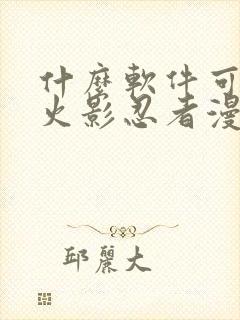 什麼軟件可
火影忍者漫
邱麗大